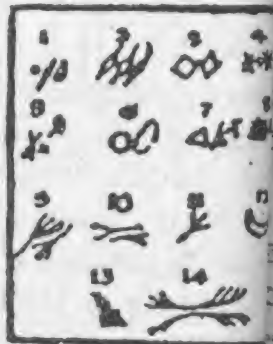 1 2 3 4
5 6 7
9 10 11
13 14